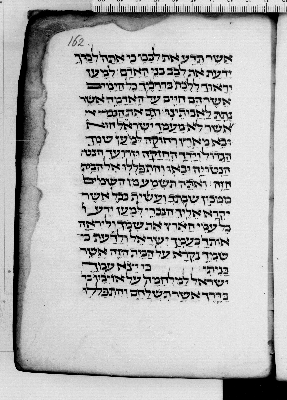 162
אשר תדע את לבבו כי אתה לבדך
ידעת את לבב בני האדם למען
יראוך ללכת בדרכיך כל הימים
אשר הם חיים על האדמה אשר
נתתה לאבותינו וגם אל הנכרי
אשר לא מעמך ישראל הוא
ובא מארץ רחוקה למען שמך
הגדול וידך החזקה וזרועך הנטו
הנטויה ובאו והתפללו אל הבית
הזה ואתה תשמע מן השמים
ממכון שבתך ועשית ככל אשר
יקרא אליך הנכרי למען ידעו
כל עמי הארץ את שמך וליראה
אותך כעמך ישראל ולדעת כי
שמך נקרא על הבית הזה אשר
בניתי כי יצא עמך
ישראל למלחמה על אויביו
בדרך אשר תשלחם והתפללו